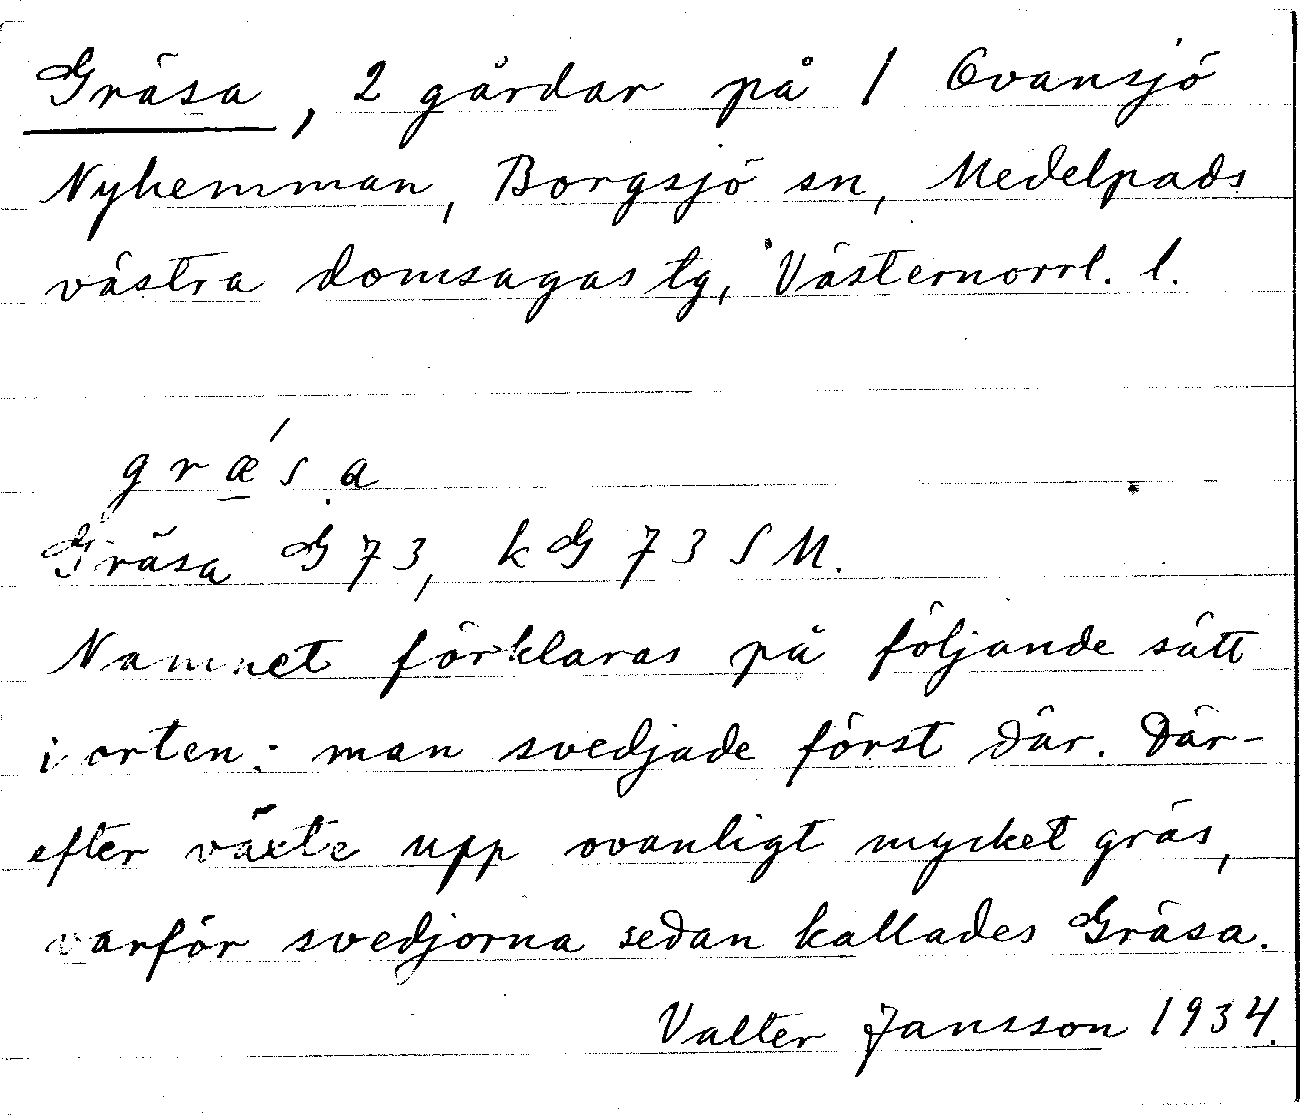 Gräsa, 2 gårdar på 1 Ovansjö
Nyhemman, Borgsjö sn, Medelpads
västra domsagas tg, Västernorrl. l.
grǽ̱sa
Gräsa G 73, kG 73 SM.
Namnet förklaras på följande sätt
i orten: man svedjade först där. Där-
efter växte upp ovanligt mycket gräs,
varför svedjorna sedan kallades Gräsa.
Valter Jansson 1934.